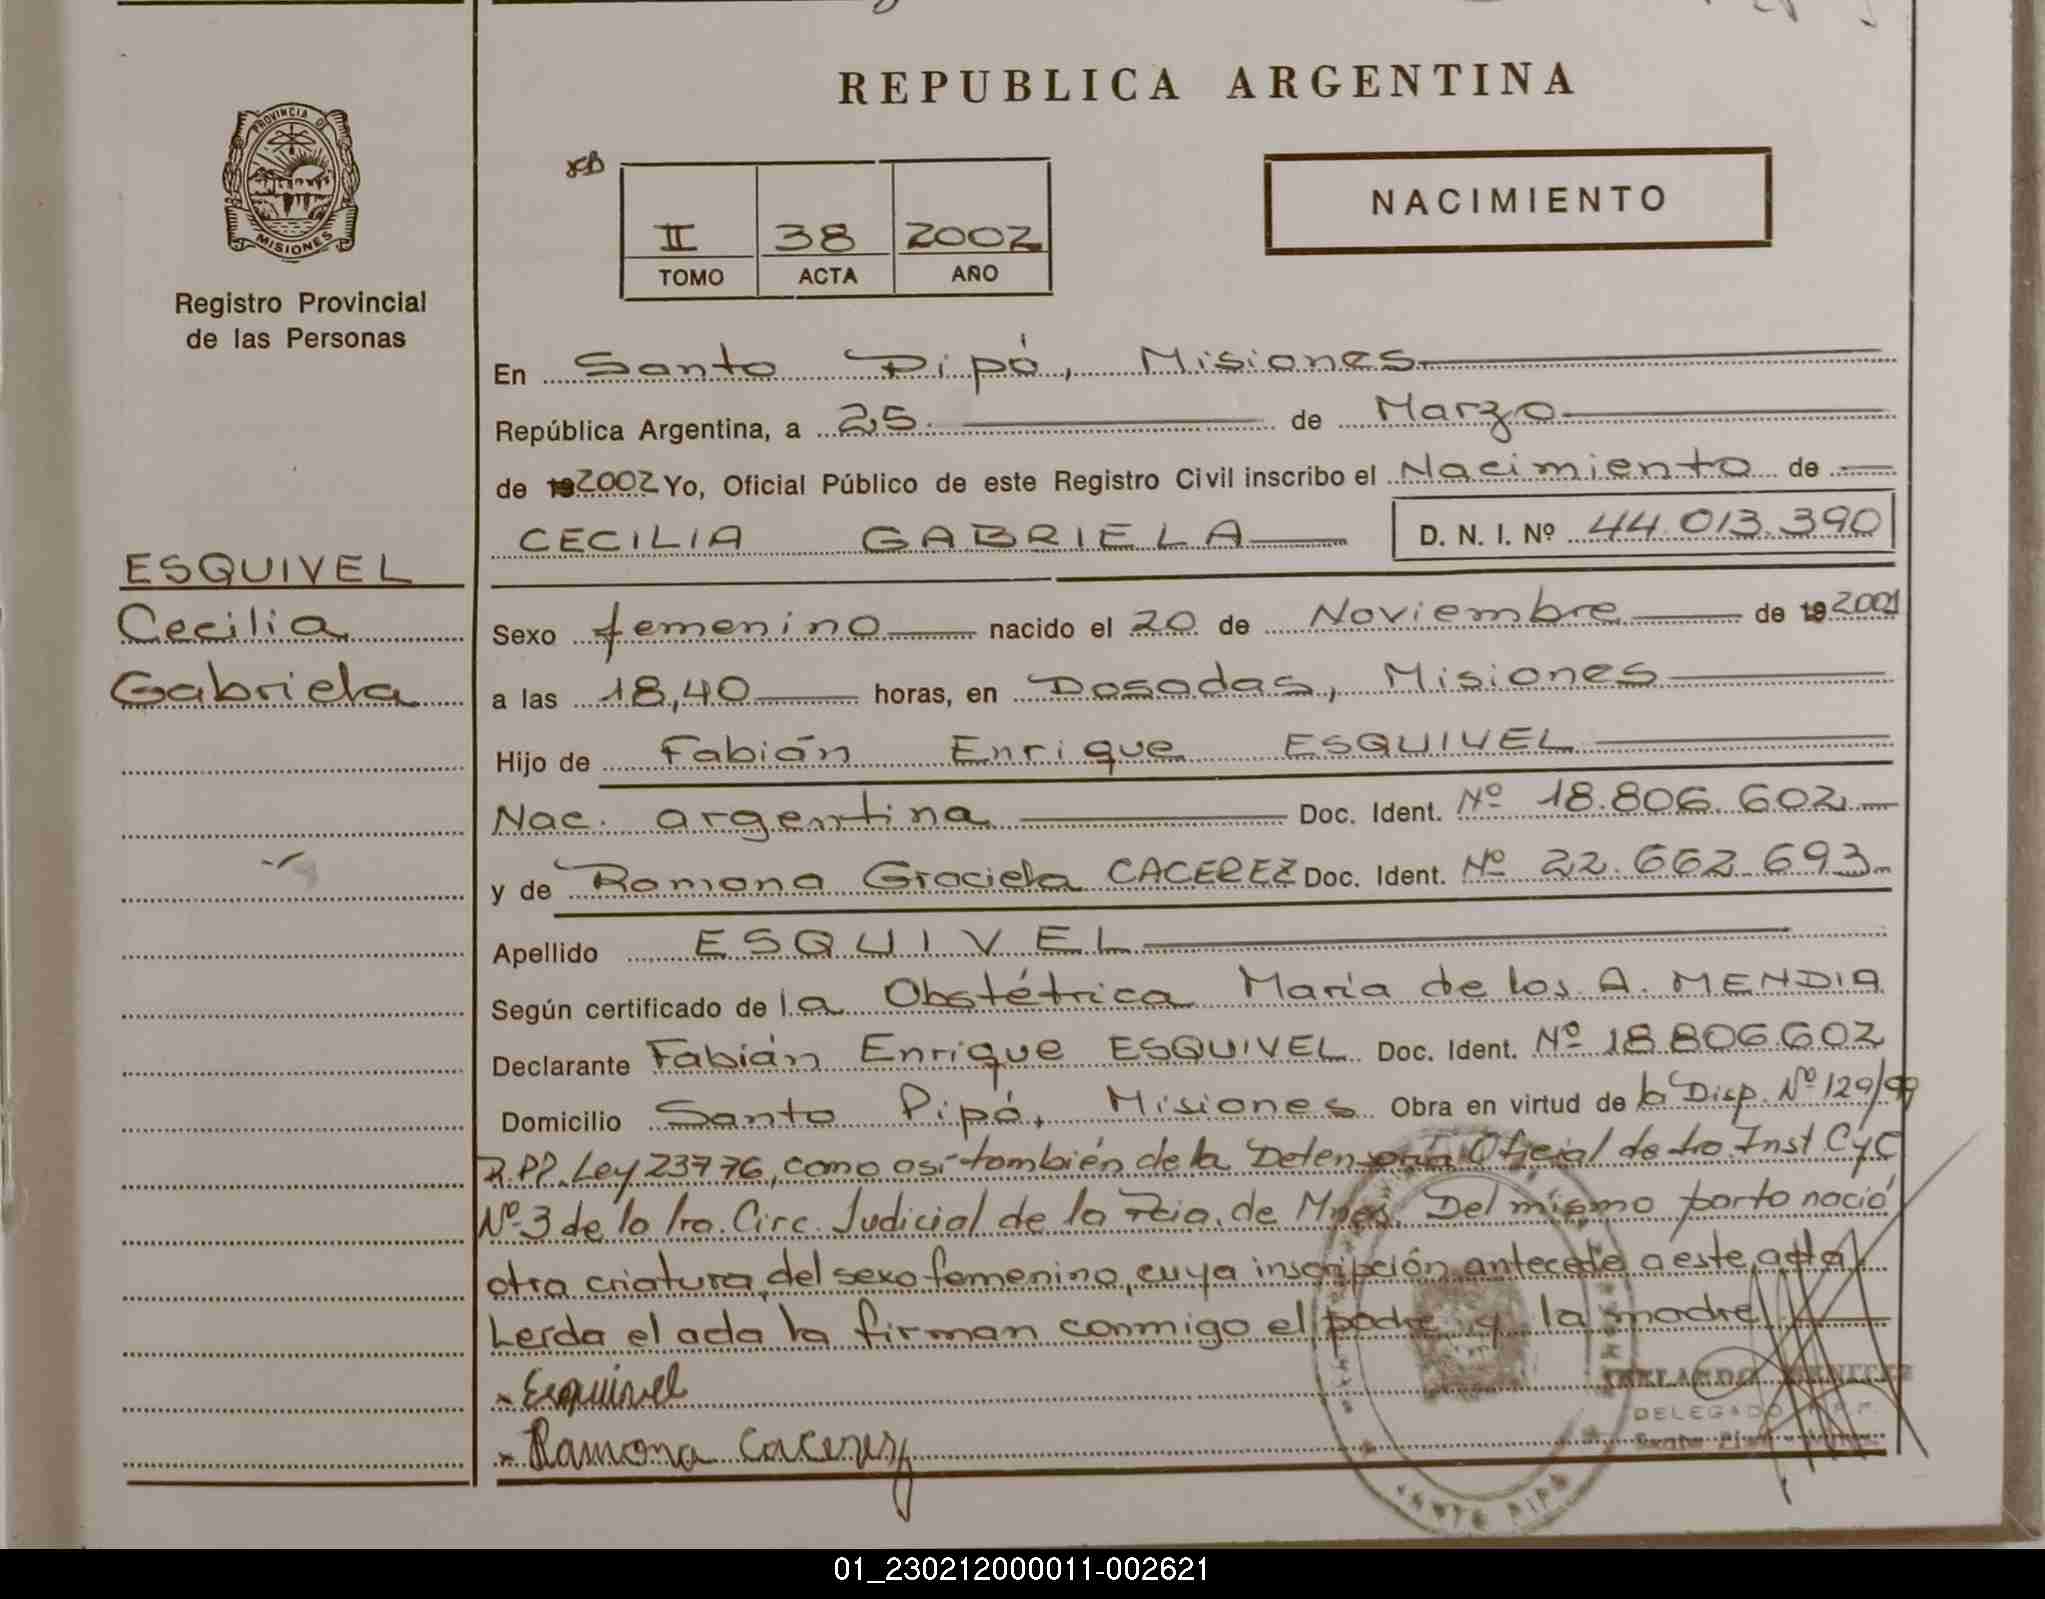 REPUBLICA ARGENTINA
PROVINCIA DE
MISIONES
Registro Provincial
de las Personas
NACIMIENTO
II 38 2002
TOMO ACTA AÑO
En Santo Pipó, Misiones
República Argentina, a 25 de Marzo
de 192002 Yo, Oficial Público de este Registro Civil inscribo el Nacimiento de
CECILIA GABRIELA D. N. I. Nº 44.013.390
ESQUIVEL
Cecilia
Gabriela
Sexo femenino nacido el 20 de Noviembre de 192001
a las 18,40 horas, en Posadas, Misiones
Hijo de Fabián Enrique ESQUIVEL
Nac. argentina Doc. Ident. Nº 18.806.602
y de Ramona Graciela CACEREZ Doc. Ident. Nº 22.662.693
Apellido ESQUIVEL
Según certificado de la Obstétrica María de los A. MENDIA
Declarante Fabián Enrique ESQUIVEL Doc. Ident. Nº 18.806.602
Domicilio Santo Pipó, Misiones Obra en virtud de la Disp. Nº 129/99
R.PP. Ley 23776, como así también de la Defensoría Oficial de 1ra. Inst CyC
Nº 3 de la 1ra. Circ. Judicial de la Pcia. de Mnes. Del mismo parto nació
otra criatura del sexo femenino, cuya inscripción antecede a este acta
Leída el acta la firman conmigo el padre y la madre
Esquivel
Ramona Cacerez
DELEGADO
SANTO PIPO
01_230212000011-002621